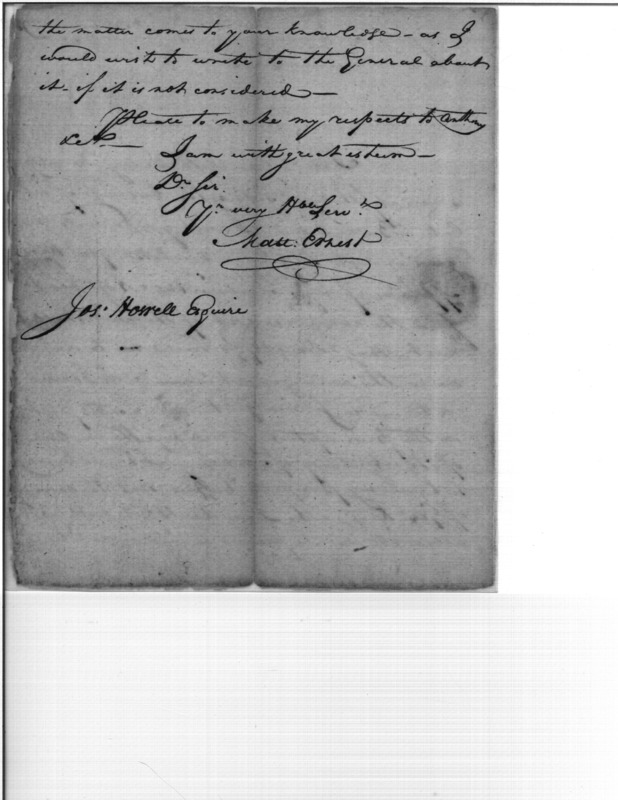 the matter comes to your knowledge – as I
would wish to write to the General about
it – if it is not considered –
Please to make my respects to Anthony
&c –
I am with great esteem –
Dr Sir
Yr very Hble Servt
Matt: Ernest
Jos: Howell Esquire